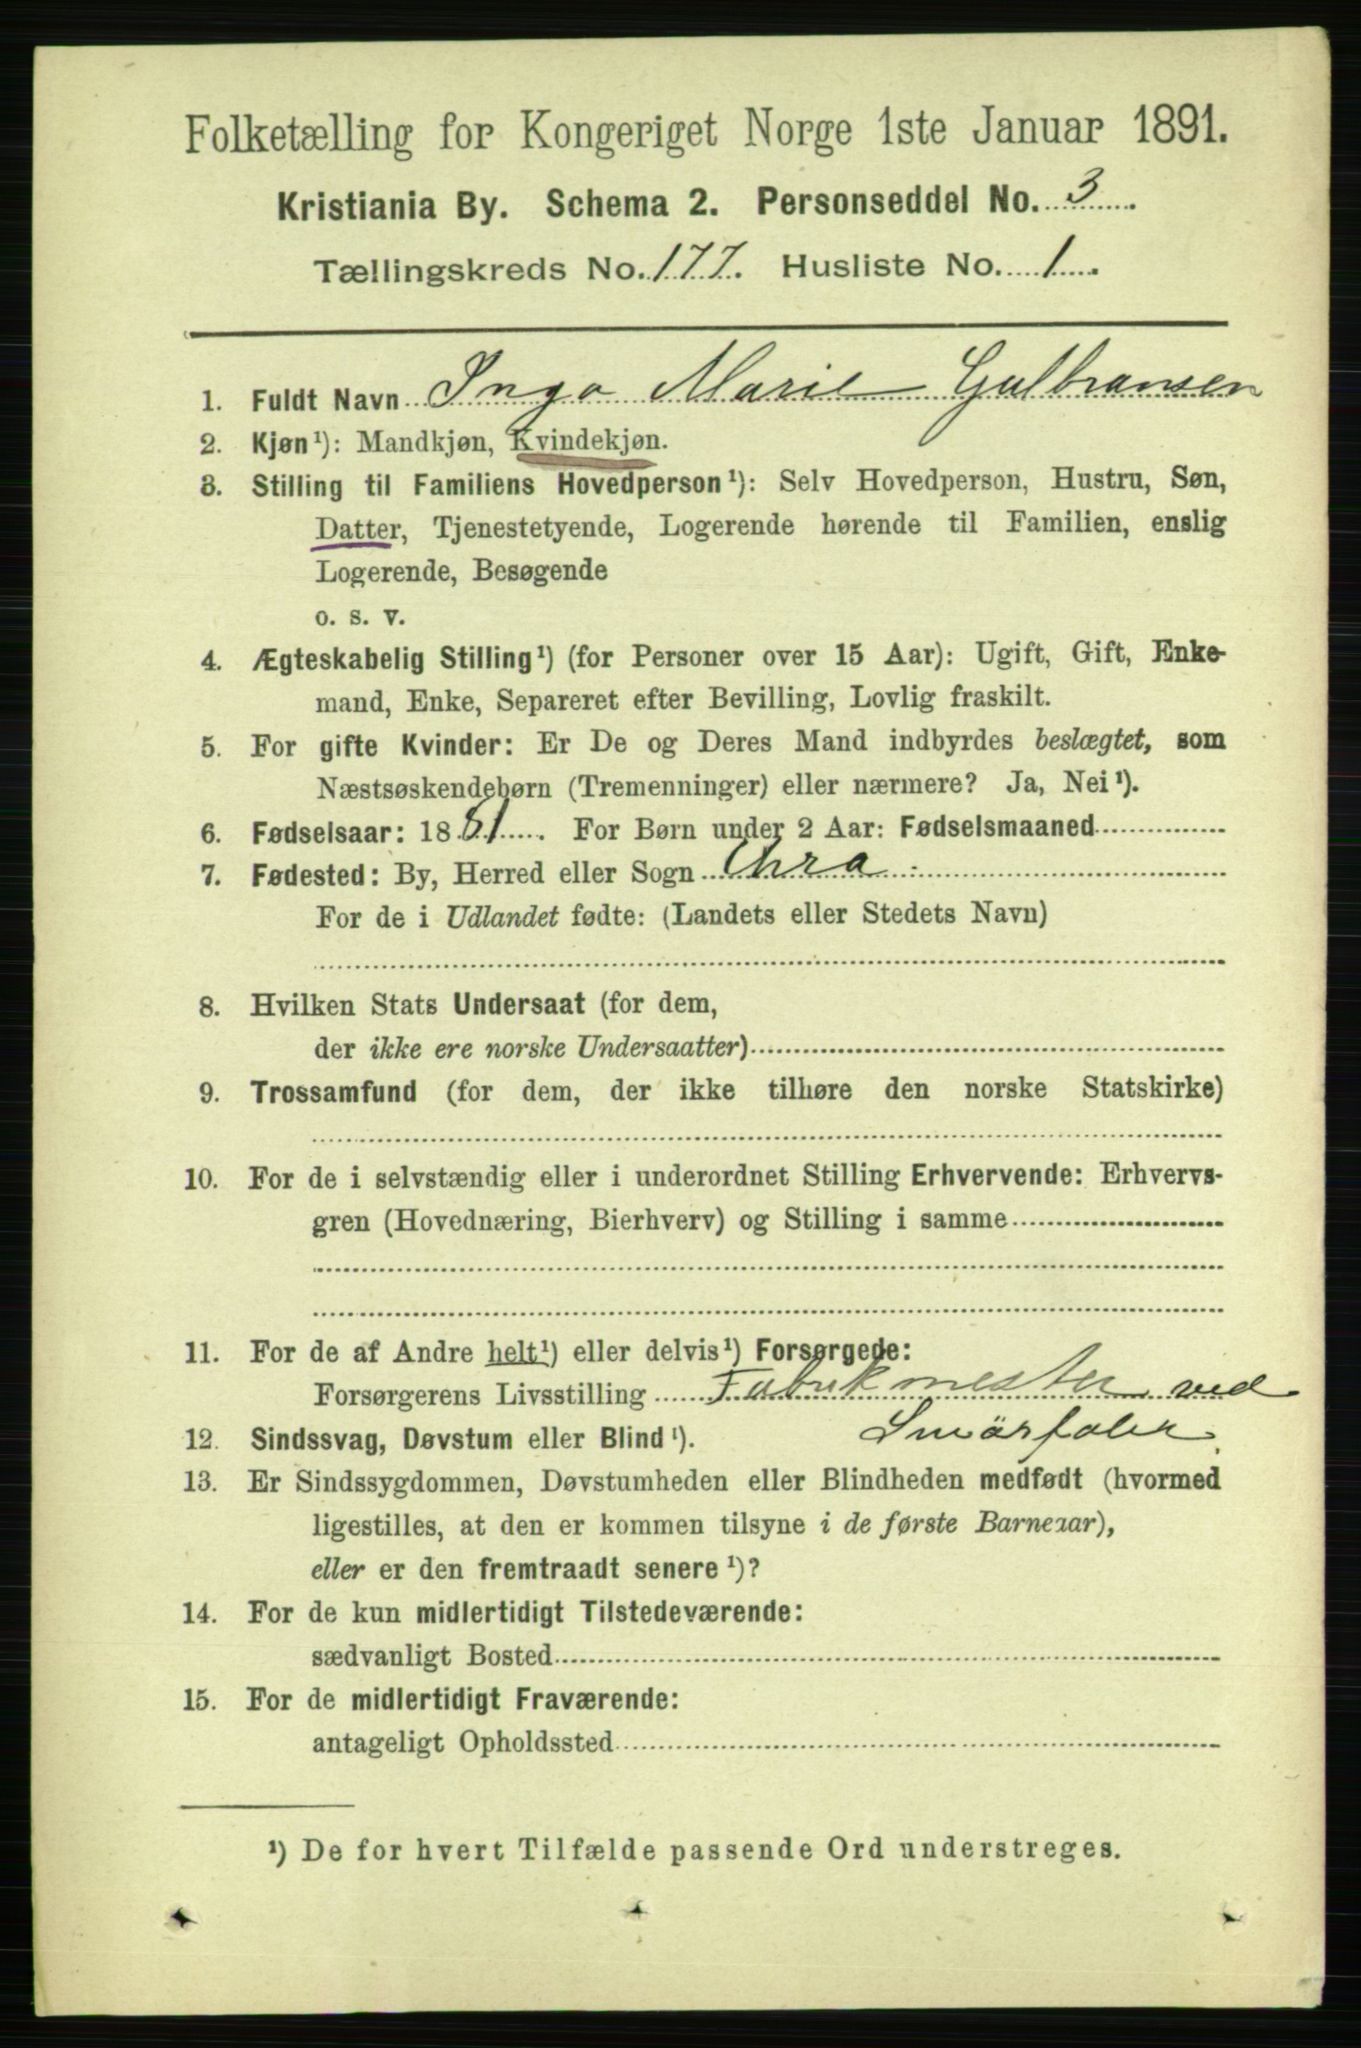 Folketælling for Kongeriget Norge 1ste Januar 1891.
Kristiania By. Schema 2. Personseddel No. 3
Tællingskreds No. 177. Husliste No. 1
1. Fuldt Navn Inga Marie Gulbransen
2. Kjøn¹): Mandkjøn, Kvindekjøn.
3. Stilling til Familiens Hovedperson¹): Selv Hovedperson, Hustru, Søn,
Datter, Tjenestetyende, Logerende hørende til Familien, enslig
Logerende, Besøgende
o. s. v.
4. Ægteskabelig Stilling¹) (for Personer over 15 Aar): Ugift, Gift, Enke-
mand, Enke, Separeret efter Bevilling, Lovlig fraskilt.
5. For gifte Kvinder: Er De og Deres Mand indbyrdes beslægtet, som
Næstsøskendebørn (Tremenninger) eller nærmere? Ja, Nei¹).
6. Fødselsaar: 1881. For Børn under 2 Aar: Fødselsmaaned
7. Fødested: By, Herred eller Sogn Chra
For de i Udlandet fødte: (Landets eller Stedets Navn)
8. Hvilken Stats Undersaat (for dem,
der ikke ere norske Undersaatter)
9. Trossamfund (for dem, der ikke tilhøre den norske Statskirke)
10. For de i selvstændig eller i underordnet Stilling Erhvervende: Erhvervs-
gren (Hovednæring, Bierhverv) og Stilling i samme
11. For de af Andre helt¹) eller delvis¹) Forsørgede:
Forsørgerens Livsstilling Fabrikmester ved
Smörfabr.
12. Sindssvag, Døvstum eller Blind¹).
13. Er Sindssygdommen, Døvstumheden eller Blindheden medfødt (hvormed
ligestilles, at den er kommen tilsyne i de første Barneaar),
eller er den fremtraadt senere¹)?
14. For de kun midlertidigt Tilstedeværende:
sædvanligt Bosted
15. For de midlertidigt Fraværende:
antageligt Opholdssted
¹) De for hvert Tilfælde passende Ord understreges.